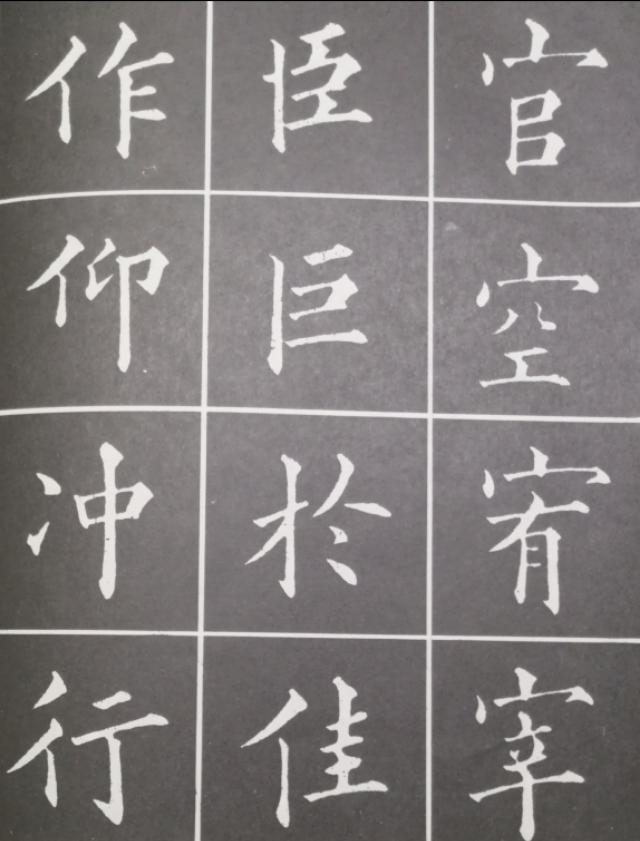 官空宥宰
臣巨於佳
作仰冲行